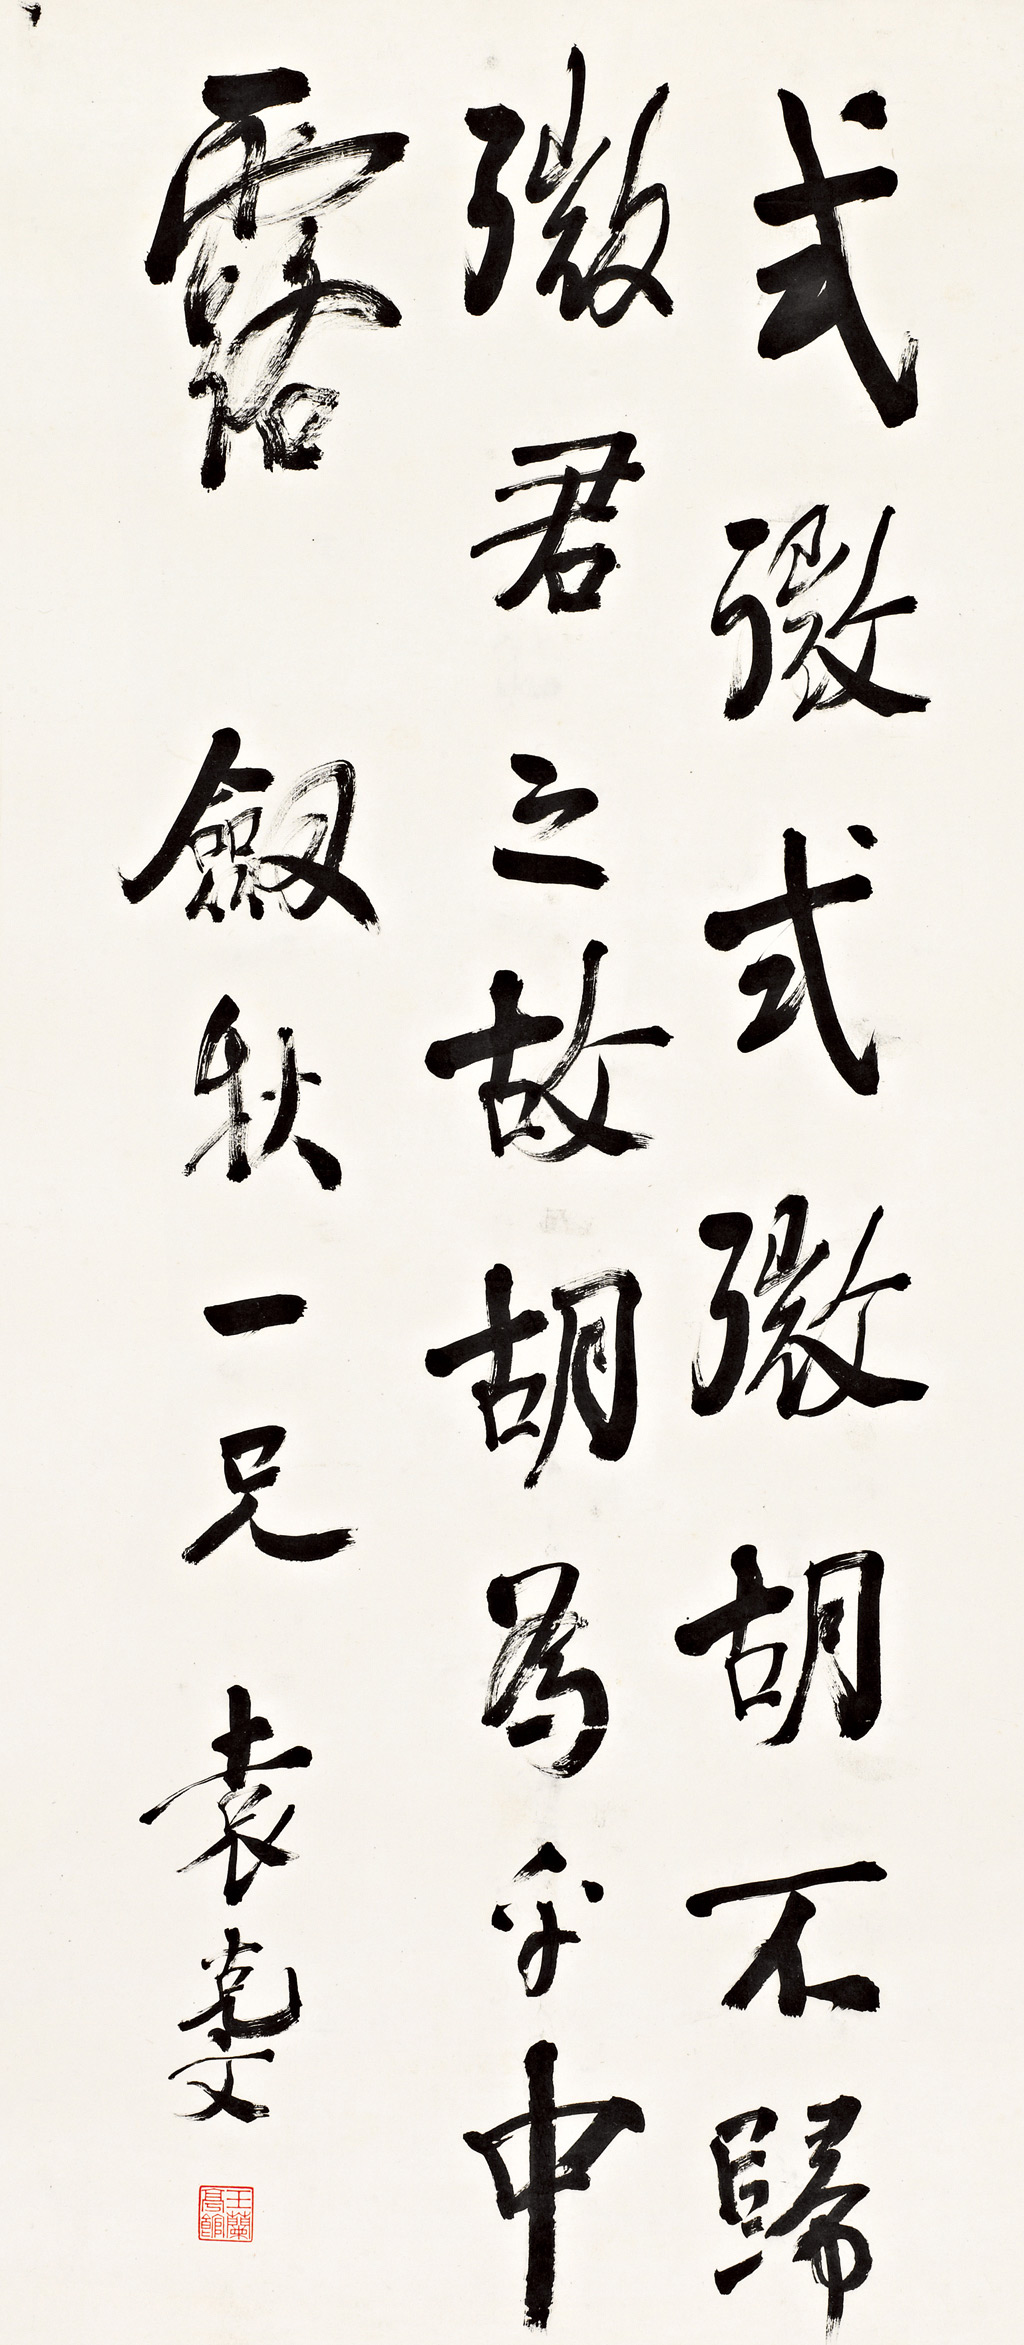 式微式微胡不歸
微君之故胡為乎中
露 劔秋一兄 袁克文